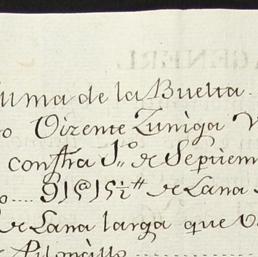 uma de la Buelta.
o Vizente Zuniga V
confta 1,,º de Septiem
o.... 91@15½# de Lana
de Lana larga que V
Piloncillo..........